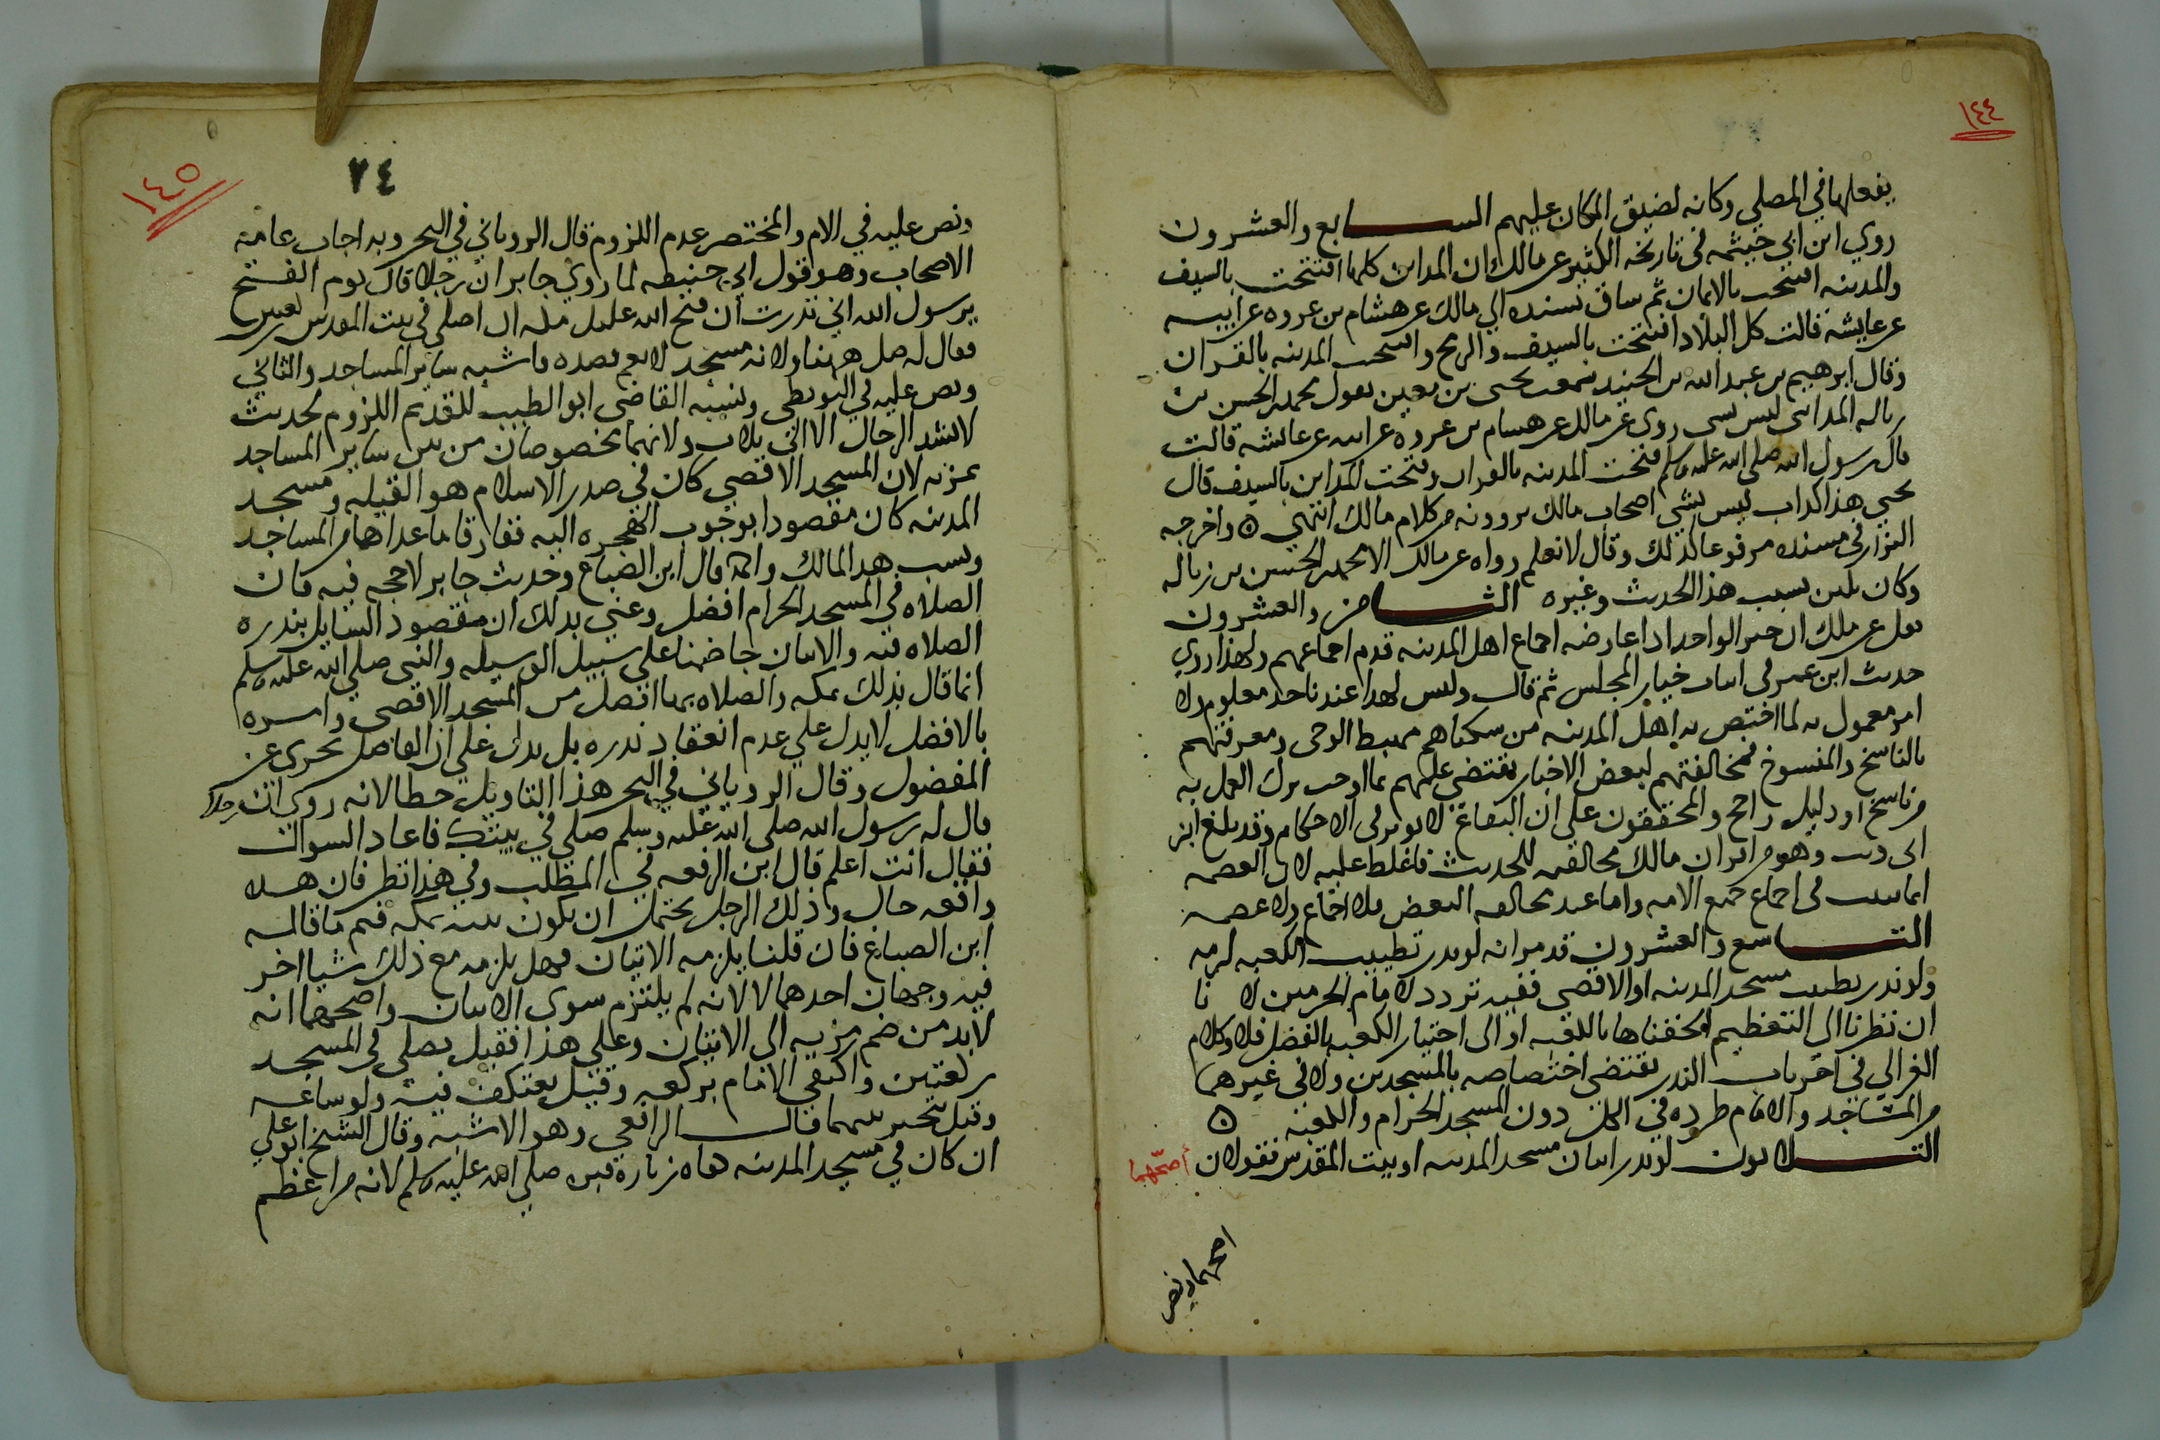 ١٤٤
يفعلها في المصلي وكانه لضيق المكان عليهم الســـابع والعشرون
روي ابن ابي خيثمه في تاريخه الكبير عن مالك ان المداين كلها افتتحت بالسيف
والمدينه افتتحت بالايمان ثم ساق بسنده الي مالك عن هشام بن عروه عن ابيه
عن عايشه قالت كل البلاد افتتحت بالسيف والرمح وافتتحت المدينه بالقران
وقال ابرهيم بن عبد الله بن الجنيد سمعت يحيى بن معين يقول محمد بن الحسن بن
زباله المدايني ليس بشي روى عن مالك عن هشام بن عروه عن ابيه عن عائشه قالت
قال رسول الله صلى الله عليه وسلم فتحت المدينه بالقران وفتحت المداين بالسيف قال
يحيي هذا كذاب ليس بشي اصحاب مالك يروونه من كلام مالك انتهي ه واخرجه
البزار في مسنده مرفوعا كذلك وقال لا نعلم رواه عن مالك الا محمد بن الحسن بن زباله
وكان يلين بسبب هذا الحديث وغيره الثـــامن والعشرون
نقل عن مالك ان خبر الواحد اذا عارضه اجماع اهل المدينه قدم اجماعهم ولهذا روي
حديث ابن عمر في اثبات خيار المجلس ثم قال وليس لهذا عندنا حد معلوم ولا
امر معمول به لما اختص به اهل المدينه من سكناهم مهبط الوحي ومعرفتهم
بالناسخ والمنسوخ فمخالفتهم لبعض الاخبار يقتضي علمهم بما اوجب ترك العمل به
من ناسخ او دليل راجح والمحققون علي ان البقاع لا يوثر في الاحكام وقد بلغ ابن
ابي ذيب وهو من اقران مالك مخالفته للحديث فاغلظ عليه لان العصمه
انما ثبتت في اجماع جميع الامه واما عند مخالفه البعض فلا اجماع ولا عصمه
التـــاسع والعشرون قد مر انه لو نذر تطييب الكعبه لزمه
ولو نذر تطييب مسجد المدينه او الاقصي ففيه تردد لامام الحرمين لانا
ان نظرنا الي التعظيم الحقناها بالكعبه او الى اختيار الكعبه بالفضل فلا وكلام
الغزالي في اخر باب النذر يقتضي اختصاصه بالمسجدين ولا في غيرهما
من المساجد والامام طرده في الكل دون المسجد الحرام والكعبه ه
الثـــلاثون لو نذر اتيان مسجد المدينه او بيت المقدس فقولان أصحّهما
اصحهما ونص
١٤٥
٧٤
ونص عليه في الام والمختصر عدم اللزوم قال الروياني في البحر وبه اجاب عامه
الاصحاب وهو قول ابي حنيفه لما روي جابر ان رجلا قال يوم الفتح
يرسول الله اني نذرت ان فتح الله عليك مكه ان اصلي في بيت المقدس
فقال له صل ههنا ولانه مسجد لا يجب قصده فاشبه ساير المساجد والثاني
ونص عليه في البويطي ونسبه القاضي ابو الطيب للقديم اللزوم لحديث
لا تشد الرحال الا الي ثلاث ولانهما مخصوصان من بين ساير المساجد
بمزيه لان المسجد الاقصي كان في صدر الاسلام هو القبله ومسجد
المدينه كان مقصودا بوجوب الهجره اليه ففارقا ما عداهما من المساجد
ونسب هذا لمالك واحمد قال ابن الصباغ وحديث جابر لا حجه فيه فان
الصلاه في المسجد الحرام افضل وعني بذلك ان مقصود السايل بنذره
الصلاه فيه والاتيان جا ضمنا علي سبيل الوسيله والنبي صلي الله عليه وسلم
انما قال بذلك بمكه والصلاه بها افضل من المسجد الاقصى وامره
بالافضل لا يدل علي عدم انعقاد نذره بل يدل علي ان الفاضل يجزى عن
المفضول وقال الروياني في البحر هذا التاويل خطا لانه روي ان رجلا
قال له رسول الله صلى الله عليه وسلم صلي في بيتك فاعاد السوال
فقال انت اعلم قال ابن الرفعه في المطلب وفي هذا نظر فان هذه
واقعه حال وذلك الرجل يحتمل ان يكون بيته بمكه فتم ما قاله
ابن الصباغ فان قلنا يلزمه الاتيان فهل يلزمه مع ذلك شيا اخر
فيه وجهان احدهما لا لانه لم يلتزم سوى الاتيان واصحهما انه
لا بد من ضم مزيه الى الاتيان وعلي هذا فقيل يصلي في المسجد
ركعتين واكتفي الامام بركعه وقيل يعتكف فيه ولو ساعه
وقيل يتخير بينهما قال الرافعي وهو الاشبه وقال الشيخ ابو علي
ان كان في مسجد المدينه كفاه زيارة قبره صلي الله عليه وسلم لانه من اعظم